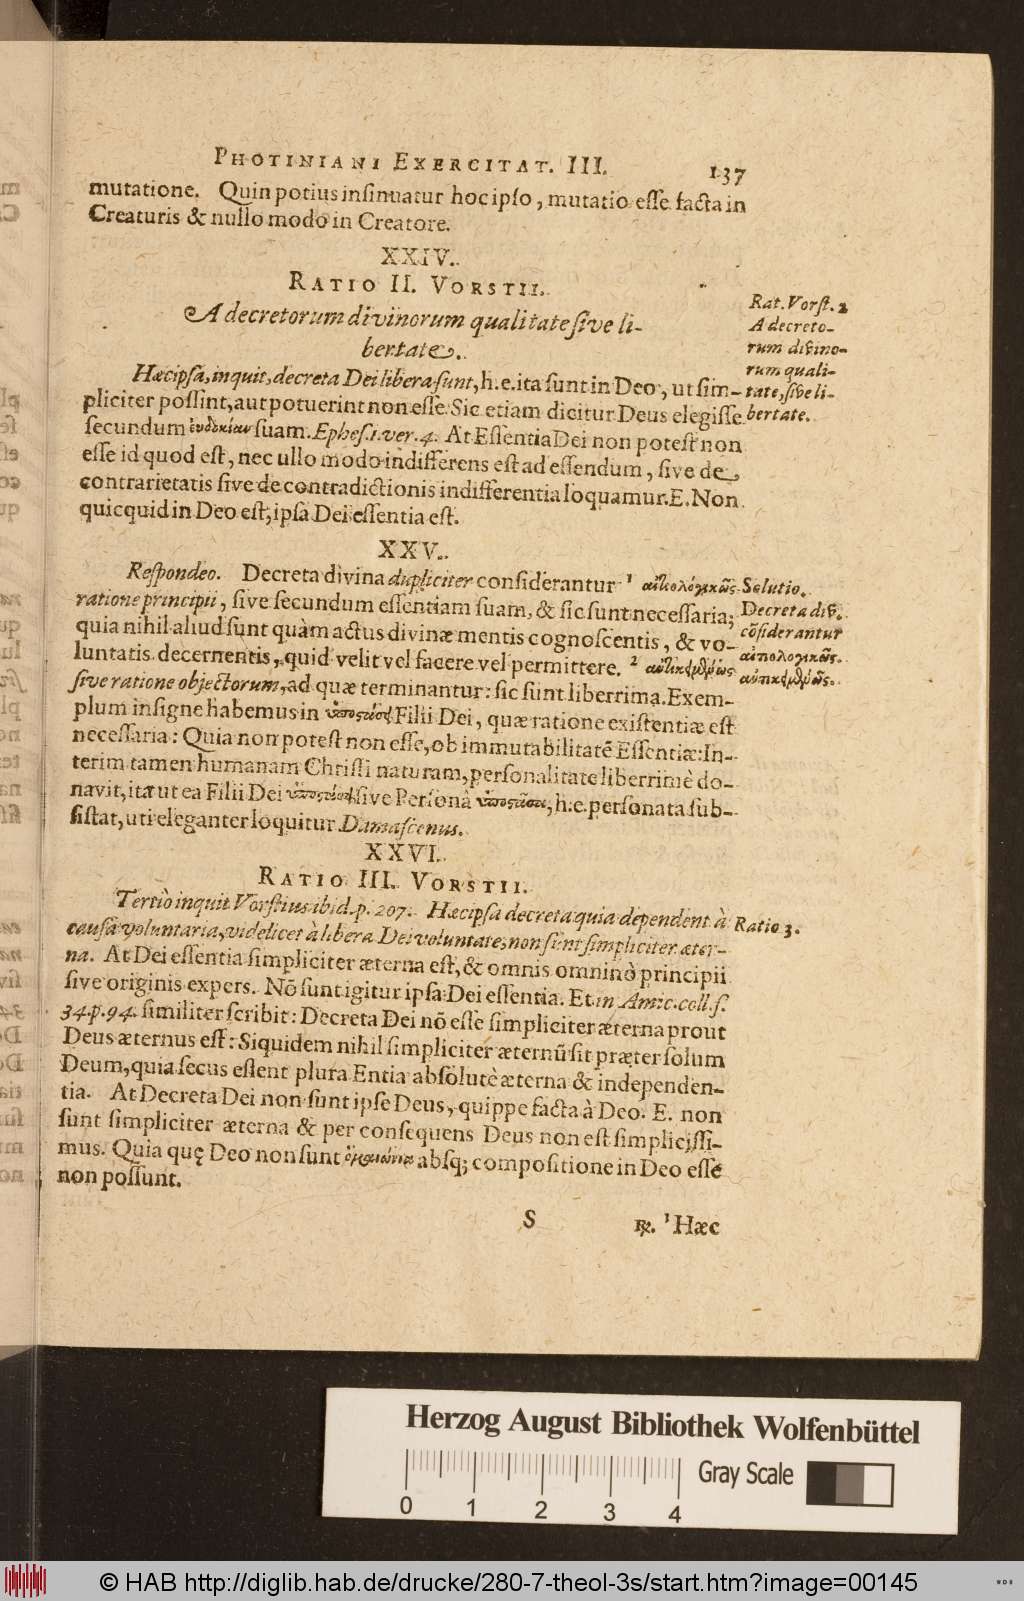 PHOTINIANI EXERCITAT. III. 137
mutatione. Quin potius insinuatur hoc ipso, mutatio esse facta in
Creaturis & nullo modo in Creatore.
XXIV.
RATIO II. VORSTII.
A decretorum divinorum qualitate sive li-
bertate.
Rat. Vorst. 2
A decreto-
rum divino-
rum quali-
tate, sive li-
bertate.
Hæc ipsa, inquit, decreta Dei libera sunt, h.e. ita sunt in Deo, ut sim-
pliciter possint, aut potuerint non esse. Sic etiam dicitur Deus elegisse
secundum ἐυδοκίαν suam. Ephes. 1. ver. 4. At Essentia Dei non potest non
esse id quod est, nec ullo modo indifferens est ad essendum, sive de
contrarietatis sive de contradictionis indifferentia loquamur. E. Non
quicquid in Deo est, ipsa Dei essentia est.
XXV.
Respondeo. Decreta divina dupliciter considerantur 1 αἰτιολογικῶς
ratione principii, sive secundum essentiam suam, & sic sunt necessaria;
quia nihil aliud sunt quàm actus divinæ mentis cognoscentis, & vo-
luntatis decernentis, quid velit vel facere vel permittere. 2
sive ratione objectorum, ad quæ terminantur: sic sunt liberrima. Exem-
plum insigne habemus in Filii Dei, quæ ratione existentiæ est
necessaria: Quia non potest non esse, ob immutabilitatē Essentiæ: In-
terim tamen humanam Christi naturam, personalitate liberrimè do-
navit, ita ut ea Filii Dei sive Personâ h.e. personata sub-
sistat, uti eleganter loquitur Damascenus.
Solutio.
Decreta div.
cōsiderantur
αἰτιολογικῶς.
XXVI.
RATIO III. VORSTII.
Tertiò inquit Vorstius ibid. p. 207. Hæc ipsa decreta quia dependent à
causa voluntaria, videlicet à libera Dei voluntate, non sunt simpliciter æter-
na. At Dei essentia simpliciter æterna est, & omnis omninò principii
sive originis expers. Nō sunt igitur ipsa Dei essentia. Et in Amic. coll. s.
34. p. 94. similiter scribit: Decreta Dei nō esse simpliciter æterna prout
Deus æternus est: Siquidem nihil simpliciter æternū sit præter solum
Deum, quia secus essent plura Entia absolutè æterna & independen-
tia. At Decreta Dei non sunt ipse Deus, quippe facta à Deo. E. non
sunt simpliciter æterna & per consequens Deus non est simplicissi-
mus. Quia quę Deo non sunt absq; compositione in Deo esse
non possunt.
Ratio 3.
S ℞. 1 Hæc
Herzog August Bibliothek Wolfenbüttel
Gray Scale
0 1 2 3 4
© HAB http://diglib.hab.de/drucke/280-7-theol-3s/start.htm?image=00145